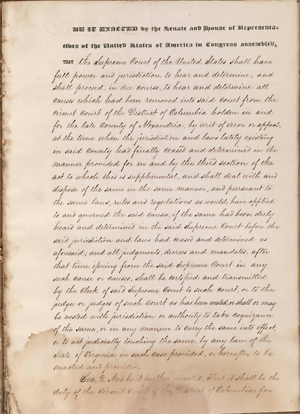 BE IT ENACTED by the Senate and House of Representa-
tives of the United States of America in Congress assembled,
That the Supreme Court of the United States shall have
full power and jurisdiction to hear and determine, and
shall proceed, in due course, to hear and determine all
causes which had been removed into said Court from the
Circuit Court of the District of Columbia holden in and
for the late County of Alexandria, by writ of error or appeal,
at the time when the jurisdiction and laws lately existing
in said County had finally ceased and determined in the
manner provided for in and by the third section of the
act to which this is supplemental, and shall deal with and
dispose of the same in the same manner, and pursuant to
the same laws, rules and regulations as would have applied
to and governed the said causes, if the same had been duly
heard and determined in the said Supreme Court before the
said jurisdiction and laws had ceased and determined as
aforesaid; and all judgments, decrees and mandates, after
that time from the said Supreme Court in any
such cause or causes, shall be certified and transmitted
by the Clerk of said Supreme Court to such court, or to the
judge or judges of such Court as has been vested, or shall or may
be vested with jurisdiction or authority to take cognizance
of the same, or in any manner to carry the same into effect,
or to act judicially touching the same, by any law of the
State of Virginia in such case provided, or hereafter to be
enacted and provided.
Sec. 2. And be it further enacted, That it shall be the
duty of the Circuit Court of the District of Columbia for